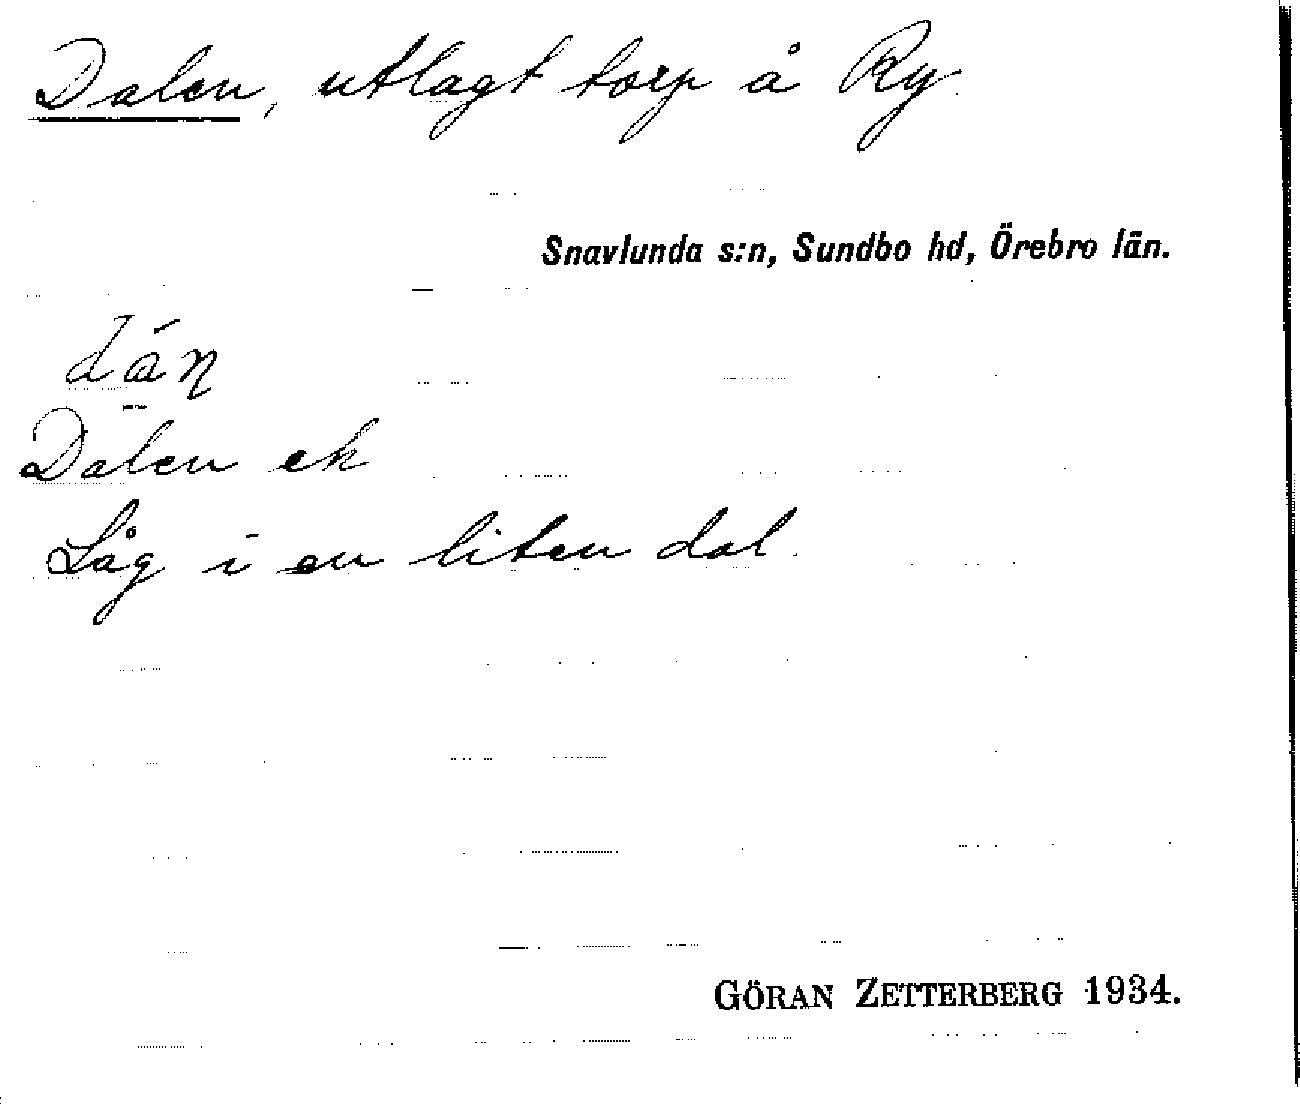 Dalen, utlagt torp å Ry.
Snavlunda s:n, Sundbo hd, Örebro län.
Dalen ek
Låg i en liten dal.
GÖRAN ZETTERBERG 1934.